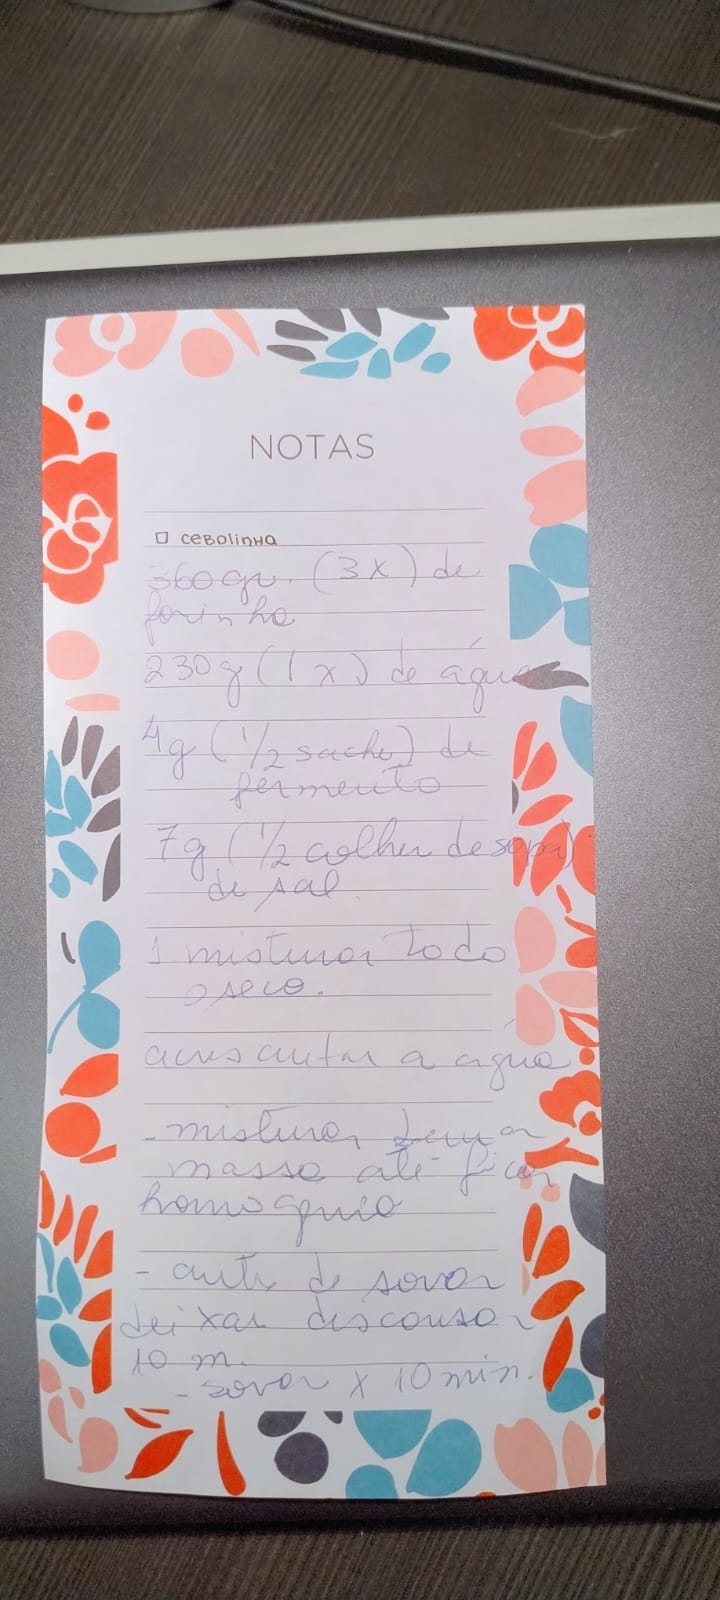 NOTAS
☐ CEBOLINHA
360gr. (3x) de
farinha
230g (1x) de água
4g (1/2 sache) de
fermento
7g (1/2 colher de sopa)
de sal
1 misturar todo
o seco.
acrescentar a água
- misturar bem a
massa até ficar
homogenea
- ante de sovar
deixar descansar
10 m.
- sovar x 10 min.